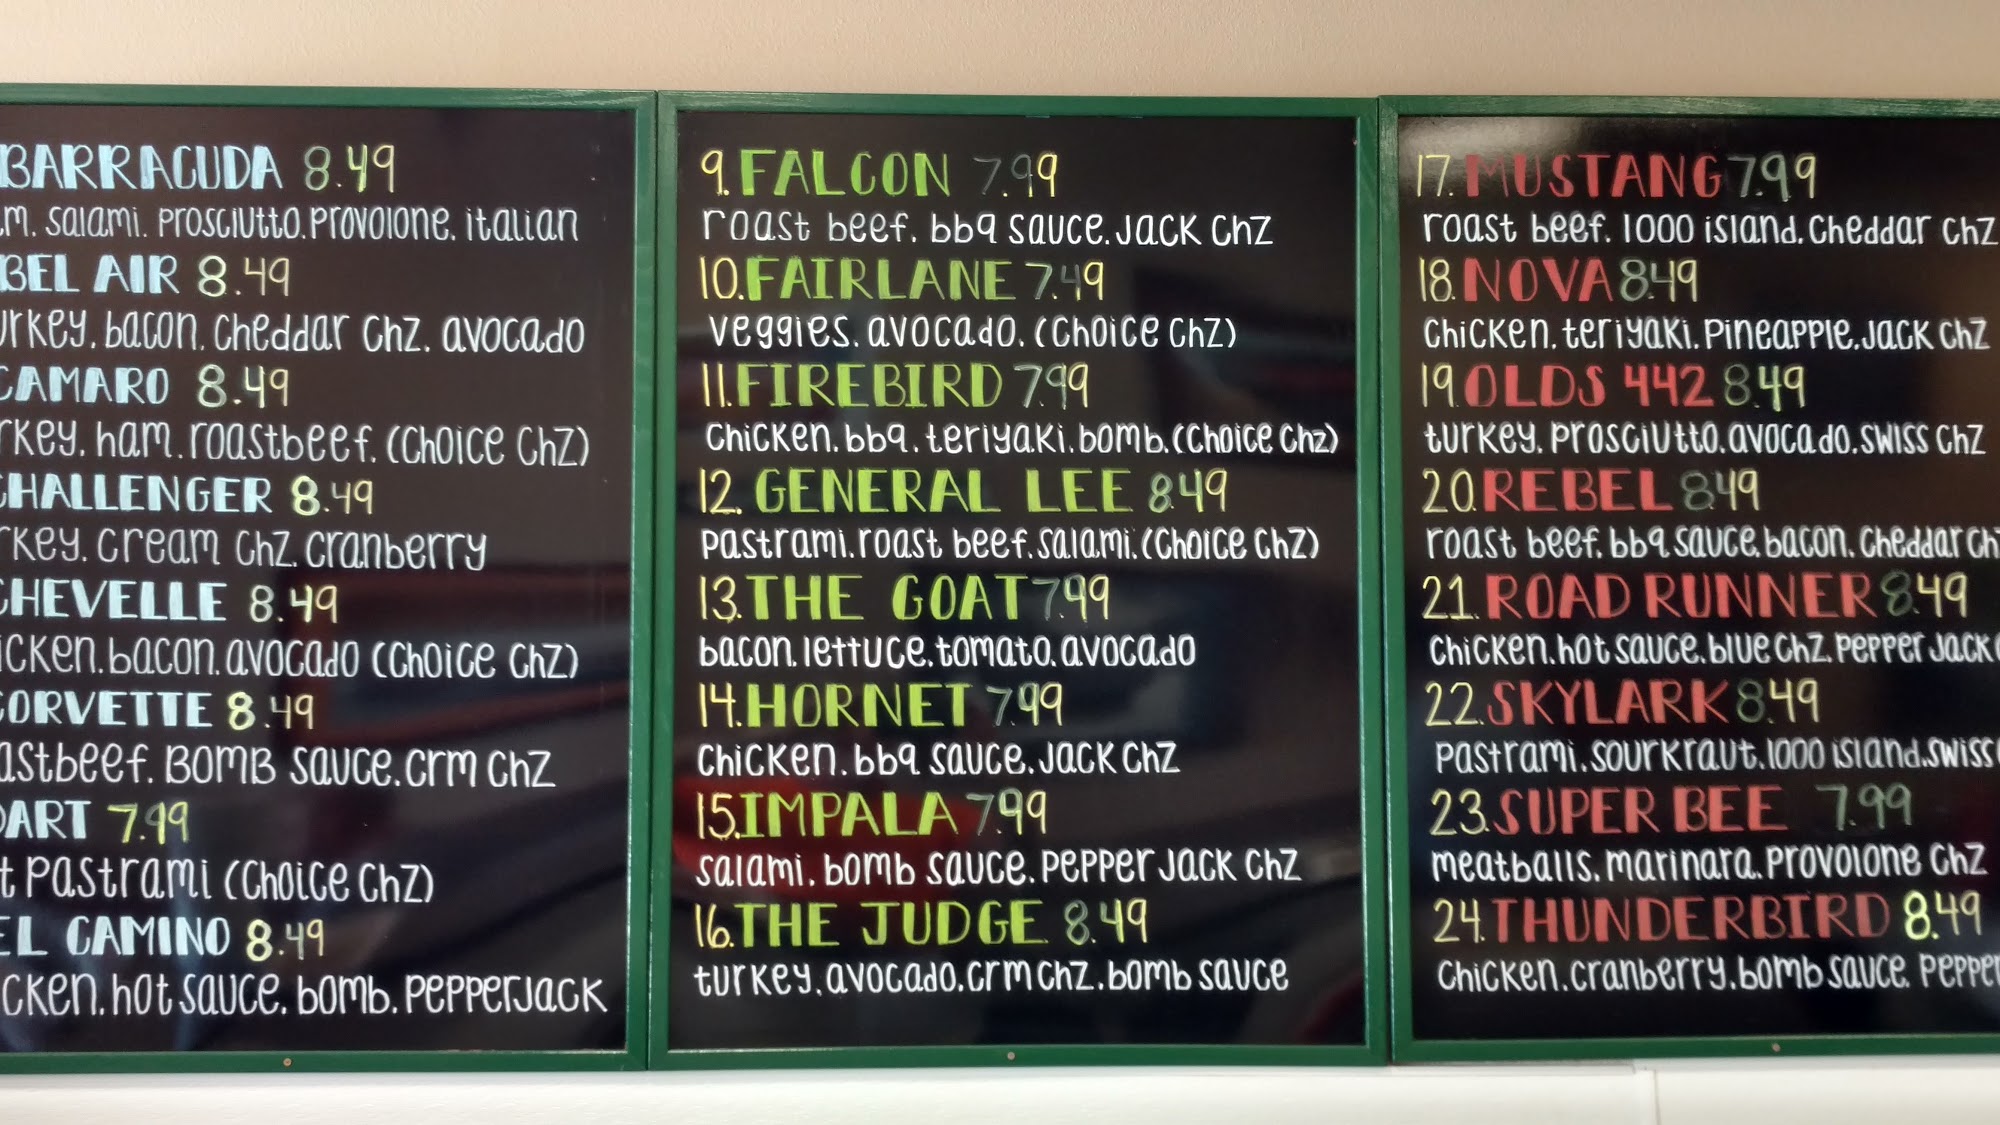 BARRACUDA 8.49
salami. Prosciutto. Provolone. italian
BEL AIR 8.49
bacon. cheddar chz. avocado
CAMARO 8.49
ham. roastbeef. (choice chz)
CHALLENGER 8.49
cream chz. cranberry
CHEVELLE 8.49
bacon. avocado (choice chz)
CORVETTE 8.49
BOMB sauce. crm chz
DART 7.99
Pastrami (choice chz)
EL CAMINO 8.49
hot sauce. bomb. Pepperjack
9. FALCON 7.99
roast beef. bbq sauce. Jack chz
10. FAIRLANE 7.49
veggies. avocado. (choice chz)
11. FIREBIRD 7.99
chicken. bbq. teriyaki. bomb. (choice chz)
12. GENERAL LEE 8.49
Pastrami. roast beef. salami. (choice chz)
13. THE GOAT 7.99
bacon. lettuce. tomato. avocado
14. HORNET 7.99
chicken. bbq sauce. Jack chz
15. IMPALA 7.99
salami. bomb sauce. Pepper Jack chz
16. THE JUDGE 8.49
turkey. avocado. crm chz. bomb sauce
17. MUSTANG 7.99
roast beef. 1000 island. cheddar chz
18. NOVA 8.49
chicken. teriyaki. Pineapple. Jack chz
19. OLDS 442 8.49
turkey. Prosciutto. avocado. swiss chz
20. REBEL 8.49
roast beef. bbq sauce. bacon. cheddar
21. ROAD RUNNER 8.49
chicken. hot sauce. blue chz. Pepper Jack
22. SKYLARK 8.49
Pastrami. sourkraut. 1000 island. swiss
23. SUPER BEE 7.99
meatballs. marinara. Provolone chz
24. THUNDERBIRD 8.49
chicken. cranberry. bomb sauce. Pepper